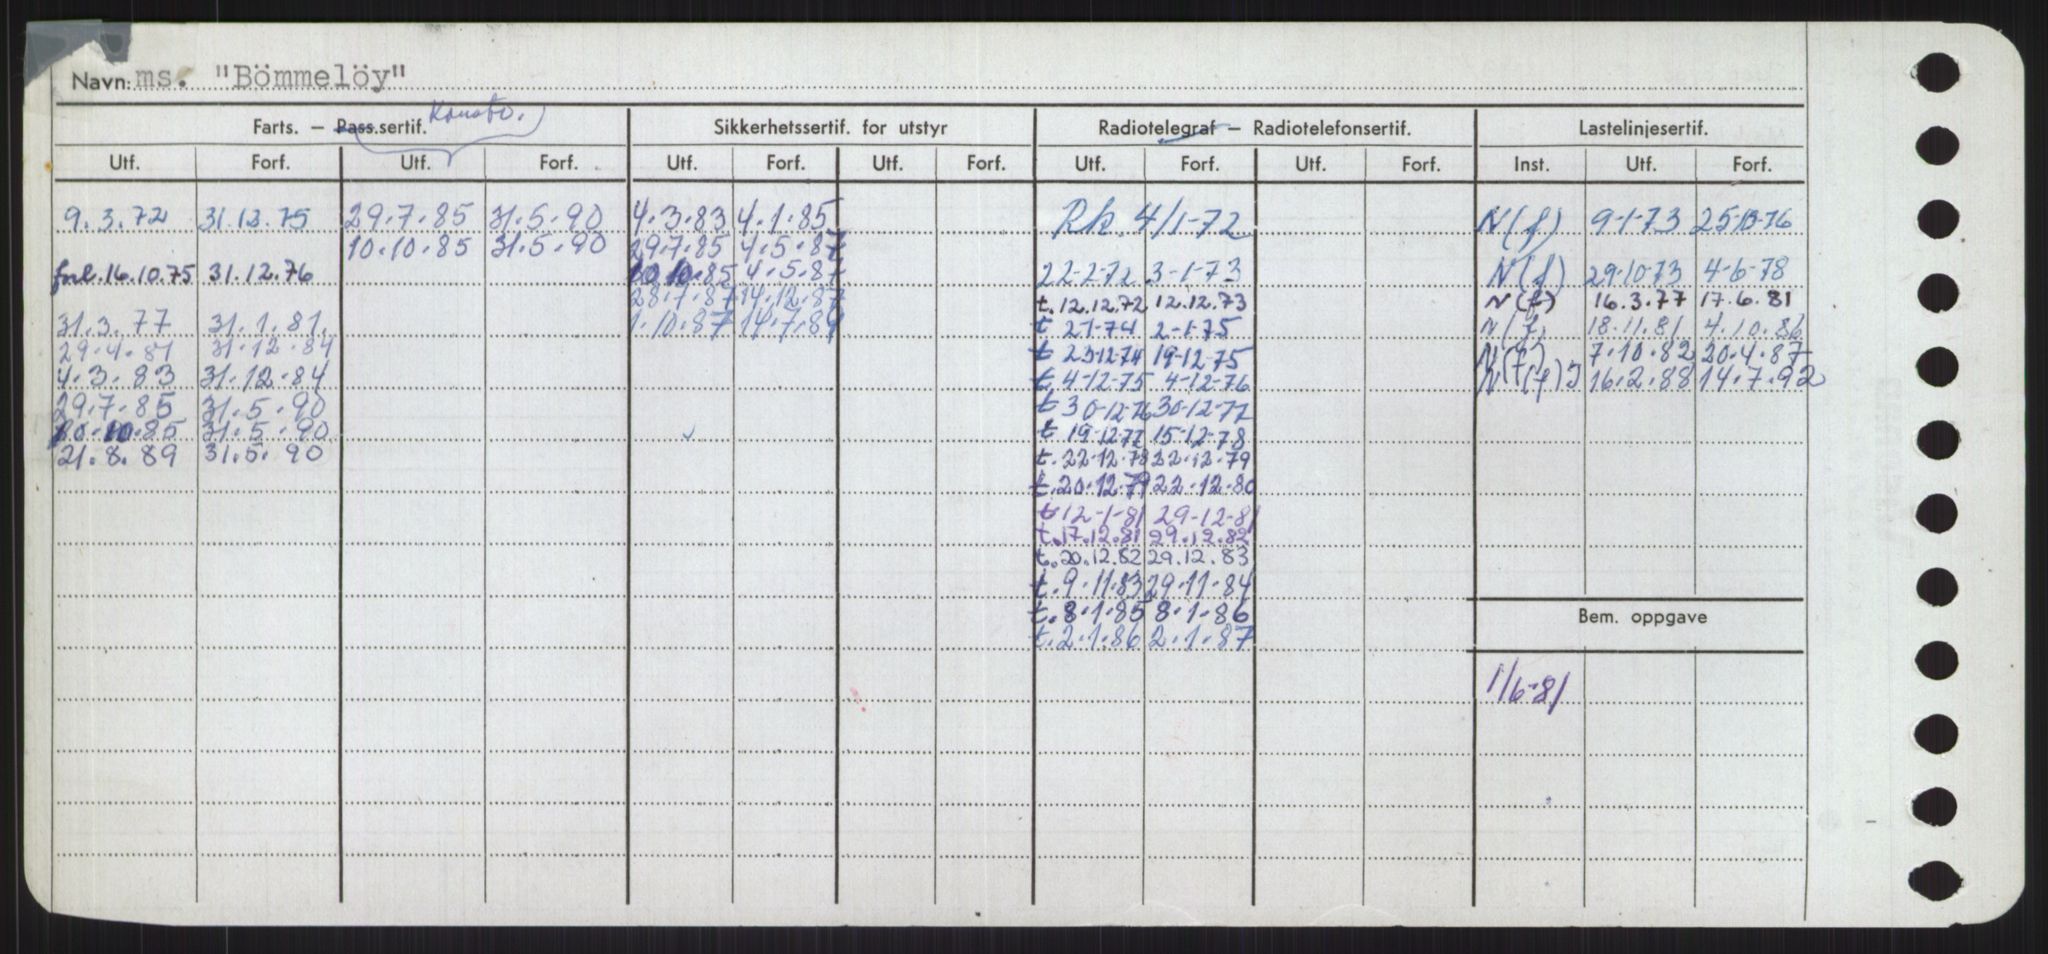 Navn: ms. "Bömmelöy"
Konstr.
Farts. – Pass.sertif. Sikkerhetssertif. for utstyr Radiotelegraf – Radiotelefonsertif. Lastelinjesertif.
Utf. Forf. Utf. Forf. Utf. Forf. Utf. Forf. Utf. Forf. Utf. Forf. Inst. Utf. Forf.
9.3.72 31.12.75 29.7.85 31.5.90 4.3.83 4.1.85 Rk. 4/1-72 N(f) 9-1-73
10.10.85 31.5.90 29.7.85 4.5.87
16.10.75 31.12.76 10.10.85 4.5.87 22-2-72 3-1-73 N(f) 29-10-73 4-6-78
28.7.87 14.12.87 t. 12.12.72 12.12.73 N(f) 16.3.77 17.6.81
31.3.77 31.1.81. 1.10.87 14.7.89 t 2-1-74 2-1-75 N(f) 18.11.81 4.10.86
29.4.81 31.12.84 t 23-12-74 19-12-75 N(f) 7.10.82 20.4.87
4.3.83 31.12.84 t. 4-12-75 4-12-76 N(f) 16.2.88 14.7.92
29.7.85 31.5.90 t 30-12-76 30-12-77
10.10.85 31.5.90 t 19-12-77 15-12-78
21.8.89 31.5.90 t. 22-12-78 22-12-79
t. 20.12.79 22.12.80
t 12-1-81 29-12-81
t. 17.12.81 29.12.82
t. 20.12.82 29.12.83
t. 9.11.83 29.11.84
t. 8.1.85 8.1.86
Bem. oppgave
t. 2.1.86 2.1.87
1/6-81